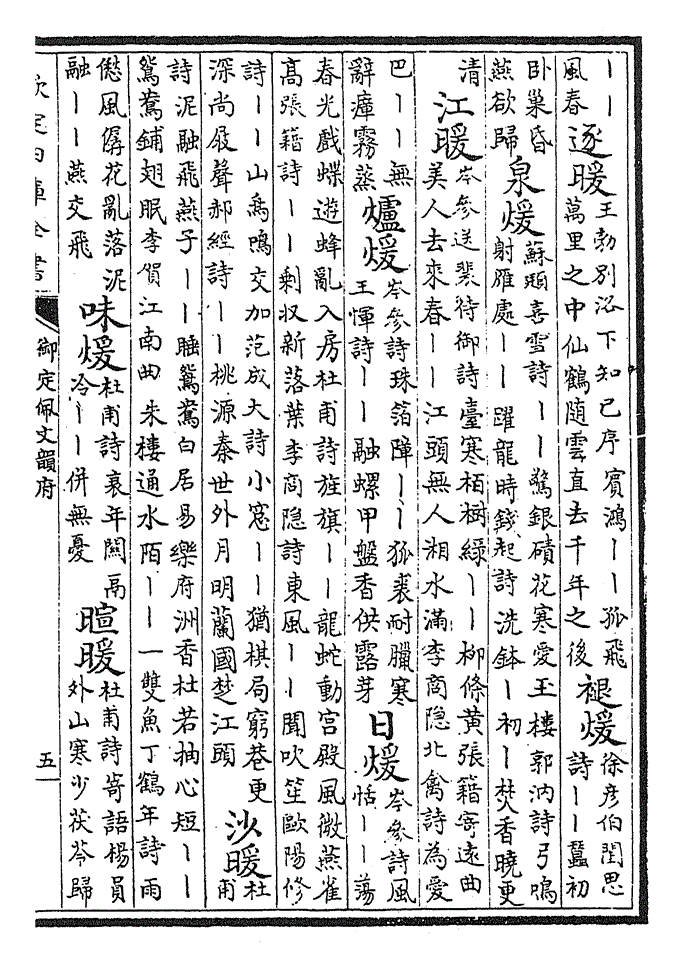 丨丨
風春
逐暖
王勃别洛下知己序賓鴻丨丨孤飛
萬里之中仙鶴随雲直去千年之後
褪煖
徐彦伯閨思
詩丨丨蠶初
卧巢昏
燕欲歸
泉煖
蘇頲喜雪詩丨丨驚銀磧花寒愛玉樓郭汭詩弓鳴
射雁處丨丨躍龍時錢起詩洗鉢丨初丨焚香曉更
清
江暖
岑參送裴侍御詩臺寒栢樹緑丨丨柳條黄張籍寄遠曲
美人去來春丨丨江頭無人湘水滿李商隐北禽詩為愛
巴丨丨無
辭瘴霧蒸
爐煖
岑參詩珠箔障丨丨狐裘耐臘寒
王惲詩丨丨融螺甲盤香供露芽
日煖
岑參詩風
恬丨丨蕩
春光戲蝶遊蜂亂入房杜甫詩旌旗丨丨龍蛇動宫殿風微燕雀
高張籍詩丨丨剩収新落葉李商隐詩東風丨丨聞吹笙歐陽修
詩丨丨山鳥鳴交加范成大詩小窓丨丨猶棋局窮巷更
深尚屐聲郝經詩丨丨桃源秦世外月明蘭國楚江頭
沙暖
杜
甫
詩泥融飛燕子丨丨睡鴛鴦白居易樂府洲香杜若抽心短丨丨
鴛鴦鋪翅眠李賀江南曲朱樓通水陌丨丨一雙魚丁鶴年詩雨
僽風僝花亂落泥
融丨丨燕交飛
味煖
杜甫詩衰年關鬲
冷丨丨併無憂
暄暖
杜甫詩寄語楊員
外山寒少茯苓歸
欽定四庫全書
御定佩文韻府
五一